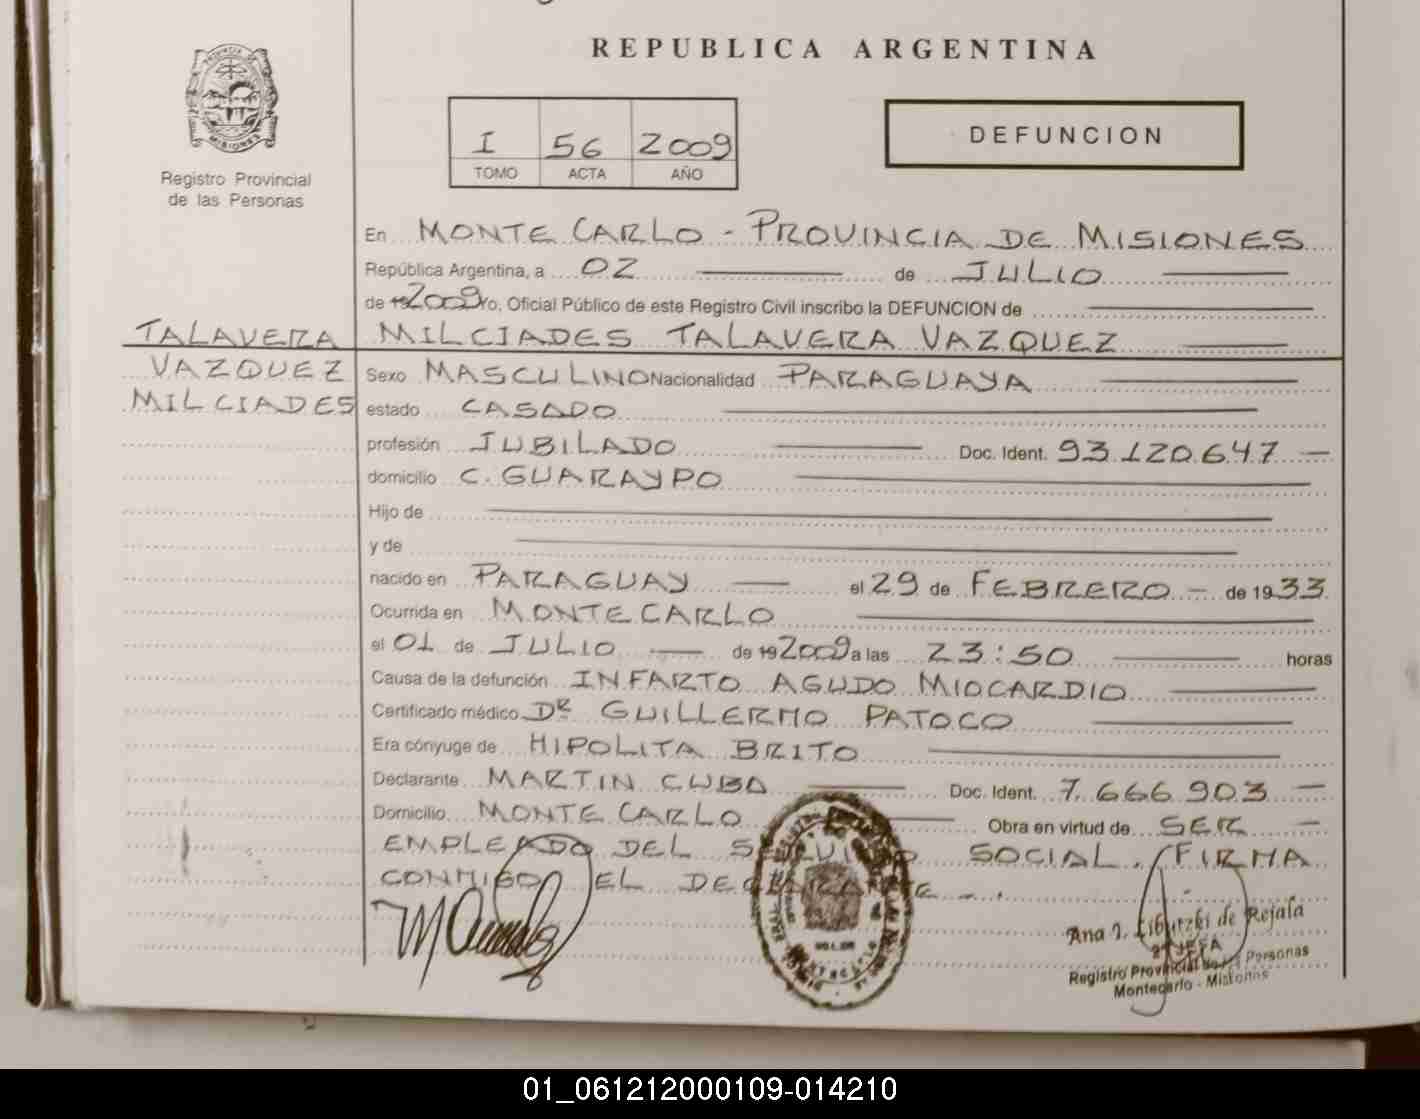 REPUBLICA ARGENTINA
PROVINCIA DE
MISIONES
Registro Provincial
de las Personas
I 56 2009
TOMO ACTA AÑO
DEFUNCION
En MONTE CARLO - PROVINCIA DE MISIONES
República Argentina, a 02 de JULIO
de 19 2009 Yo, Oficial Público de este Registro Civil inscribo la DEFUNCION de
MILCIADES TALAVERA VAZQUEZ
TALAVERA
VAZQUEZ
MILCIADES
Sexo MASCULINO Nacionalidad PARAGUAYA
estado CASADO
profesión JUBILADO Doc. Ident. 93.120.647 —
domicilio C. GUARAYPO
Hijo de
y de
nacido en PARAGUAY — el 29 de FEBRERO - de 1933
Ocurrida en MONTECARLO
el 01 de JULIO — de 19 2009 a las 23:50 horas
Causa de la defunción INFARTO AGUDO MIOCARDIO
Certificado médico DR GUILLERMO PATOCO
Era cónyuge de HIPOLITA BRITO
Declarante MARTIN CUBA Doc. Ident. 7.666.903 —
Domicilio MONTE CARLO Obra en virtud de SER —
EMPLEADO DEL SERVICIO SOCIAL. FIRMA
CONMIGO EL DECLARANTE - .
Ana I. de Rejala
JEFA
Registro Provincial de las Personas
Montecarlo - Misiones
01_061212000109-014210